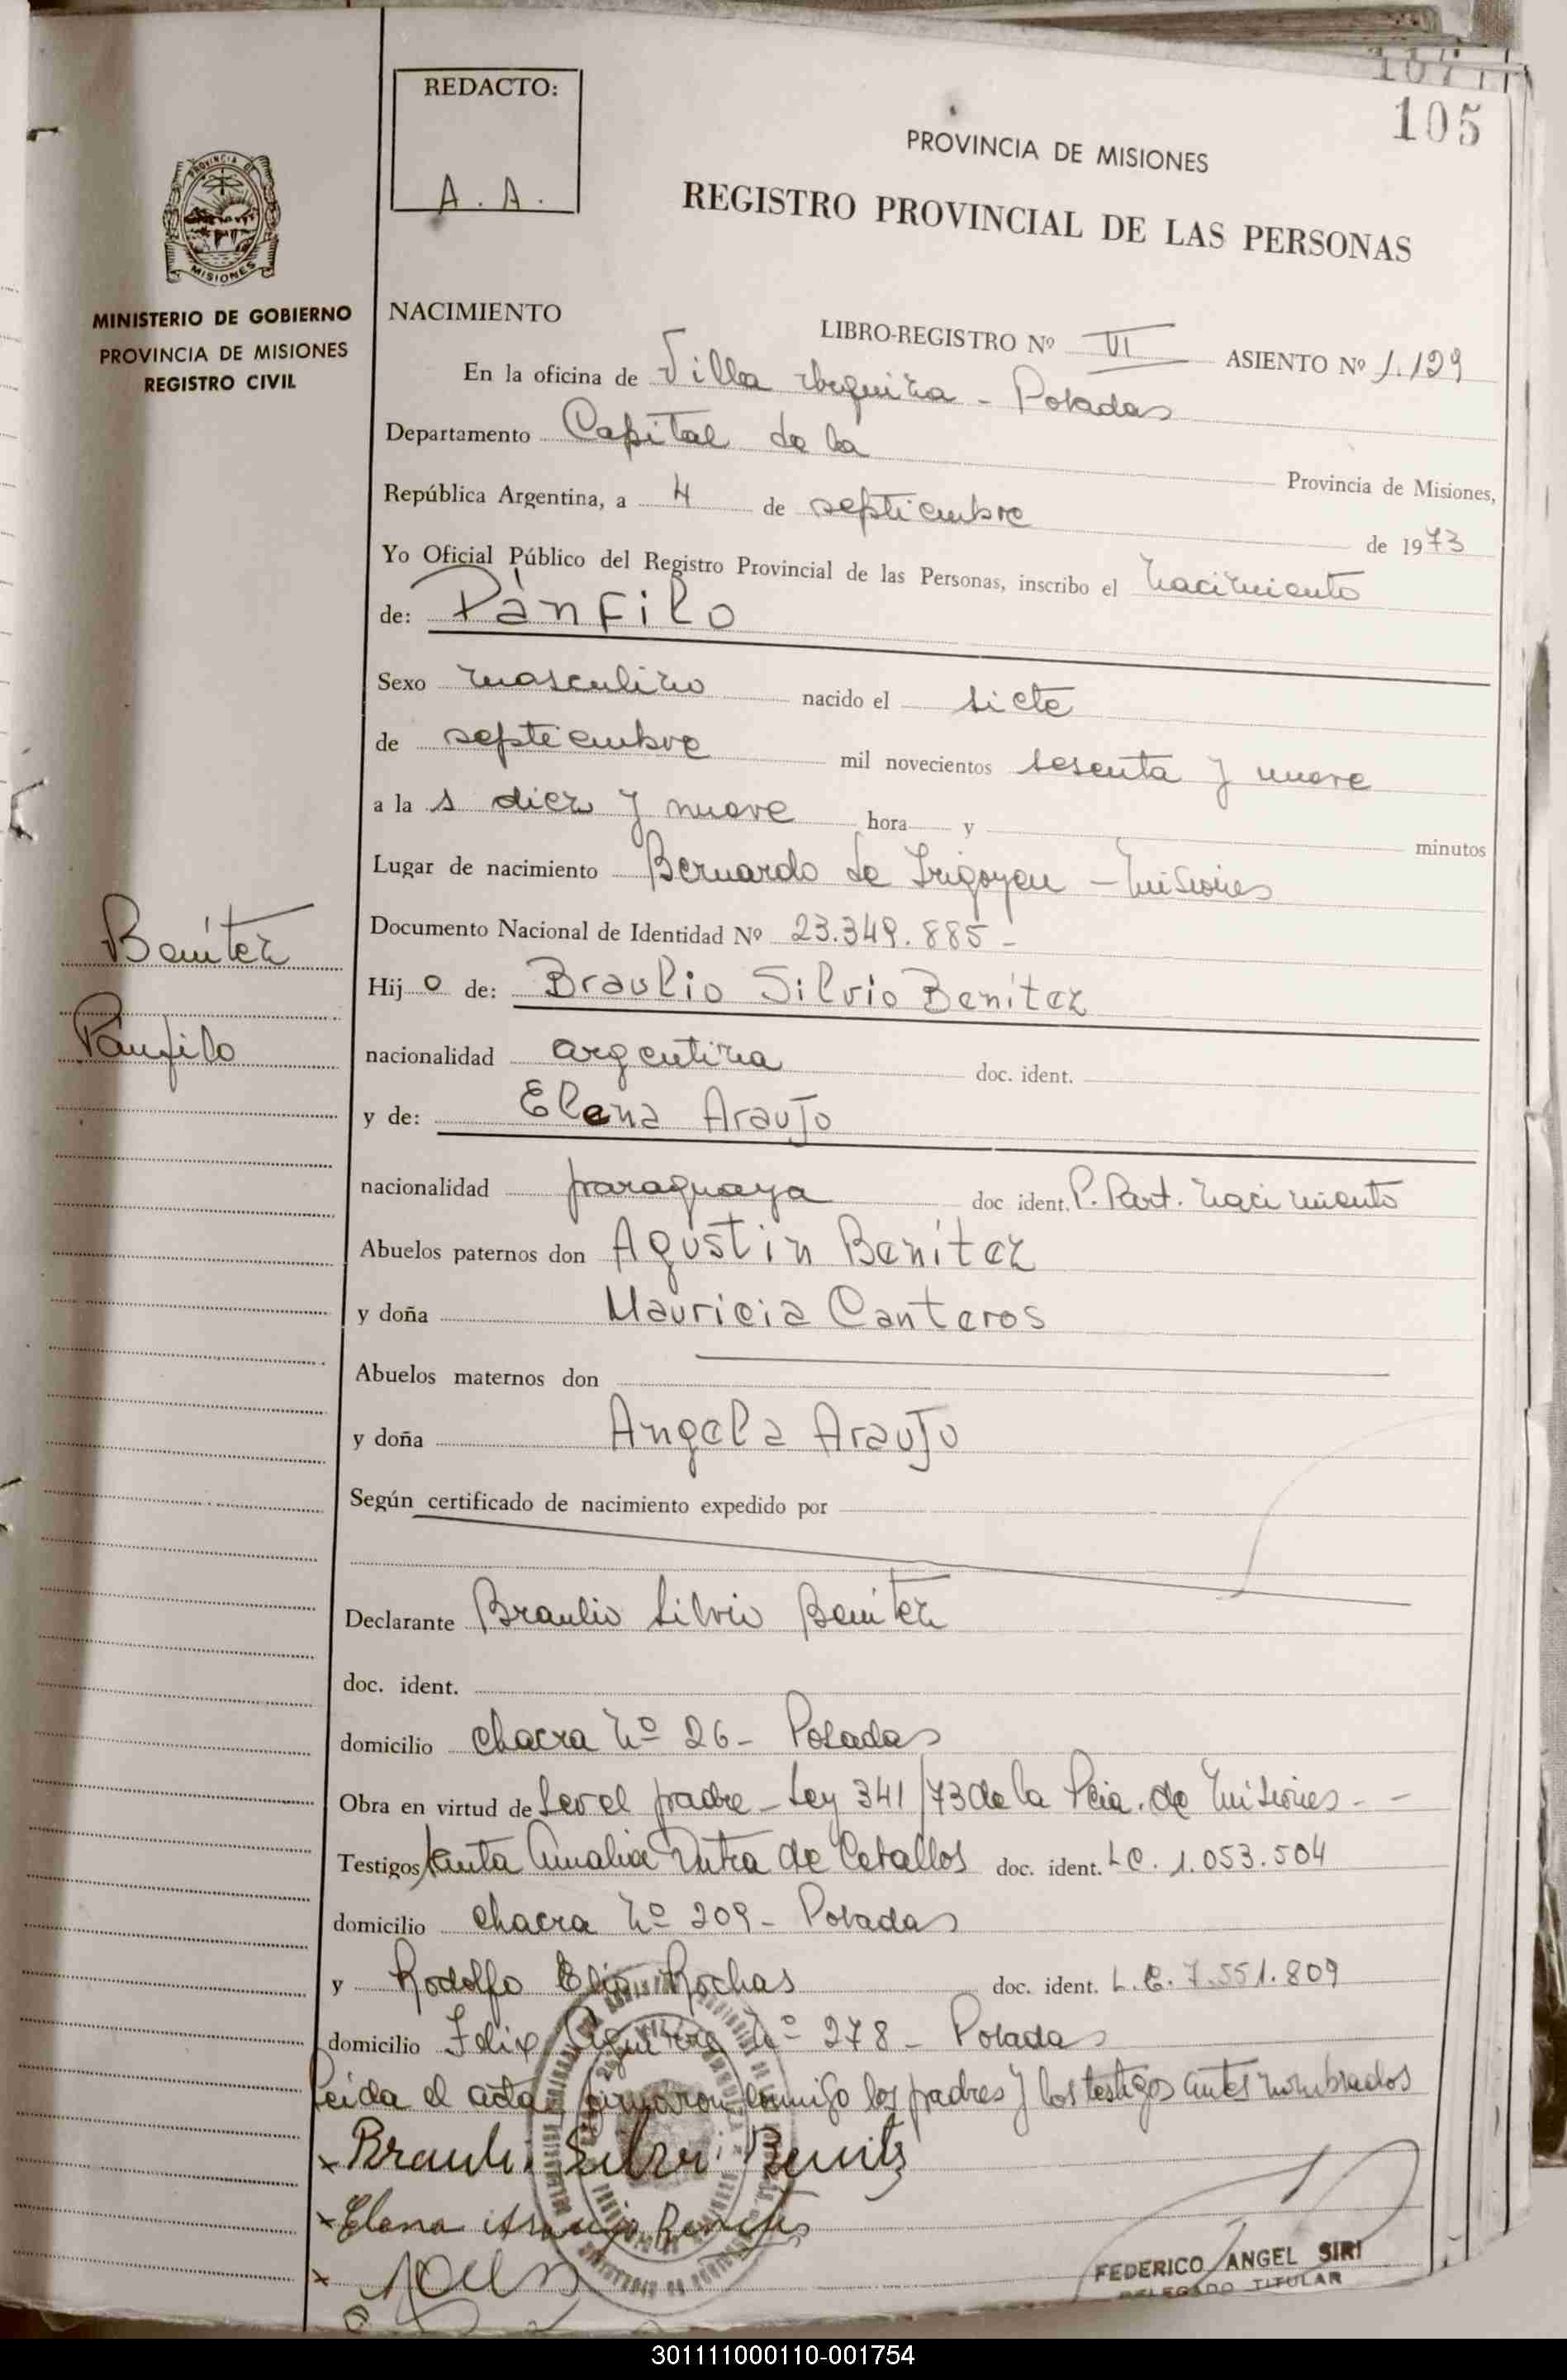 107
105
REDACTO:
A. A.
PROVINCIA DE MISIONES
REGISTRO PROVINCIAL DE LAS PERSONAS
PROVINCIA DE
MISIONES
MINISTERIO DE GOBIERNO
PROVINCIA DE MISIONES
REGISTRO CIVIL
NACIMIENTO
LIBRO-REGISTRO Nº VI ASIENTO Nº 1.129
En la oficina de Villa Urquiza - Posadas
Departamento Capital de la Provincia de Misiones,
República Argentina, a 4 de septiembre de 1973
Yo Oficial Público del Registro Provincial de las Personas, inscribo el nacimiento
de: Pànfilo
Sexo masculino nacido el siete
de septiembre mil novecientos sesenta y nueve
a la s diez y nueve hora y minutos
Lugar de nacimiento Bernardo de Irigoyen - Misiones
Documento Nacional de Identidad Nº 23.349.885 -
Benítez
Hij o de: Braulio Silvio Benítez
Panfilo
nacionalidad argentina doc. ident.
y de: Elena Araujo
nacionalidad paraguaya doc ident. P. Part. nacimiento
Abuelos paternos don Agustin Benítez
y doña Mauricia Canteros
Abuelos maternos don
y doña Angela Araujo
Según certificado de nacimiento expedido por
Declarante Braulio Silvio Benítez
doc. ident.
domicilio chacra nº 26 - Posadas
Obra en virtud de Ser el padre - Ley 341/73 de la Pcia. de Misiones - -
Testigos Amalia Dutra de Ceballos doc. ident. LC. 1.053.504
domicilio chacra nº 209 - Posadas
y Rodolfo Rochas doc. ident. L.E. 7.551.809
domicilio Felix Aguirre nº 278 - Posadas
Leida el acta, firmaron conmigo los padres y los testigos antes nombrados
x Braulio Silvio Benitz
x Elena Araujo Benites
x
FEDERICO ANGEL SIRI
DELEGADO TITULAR
301111000110-001754